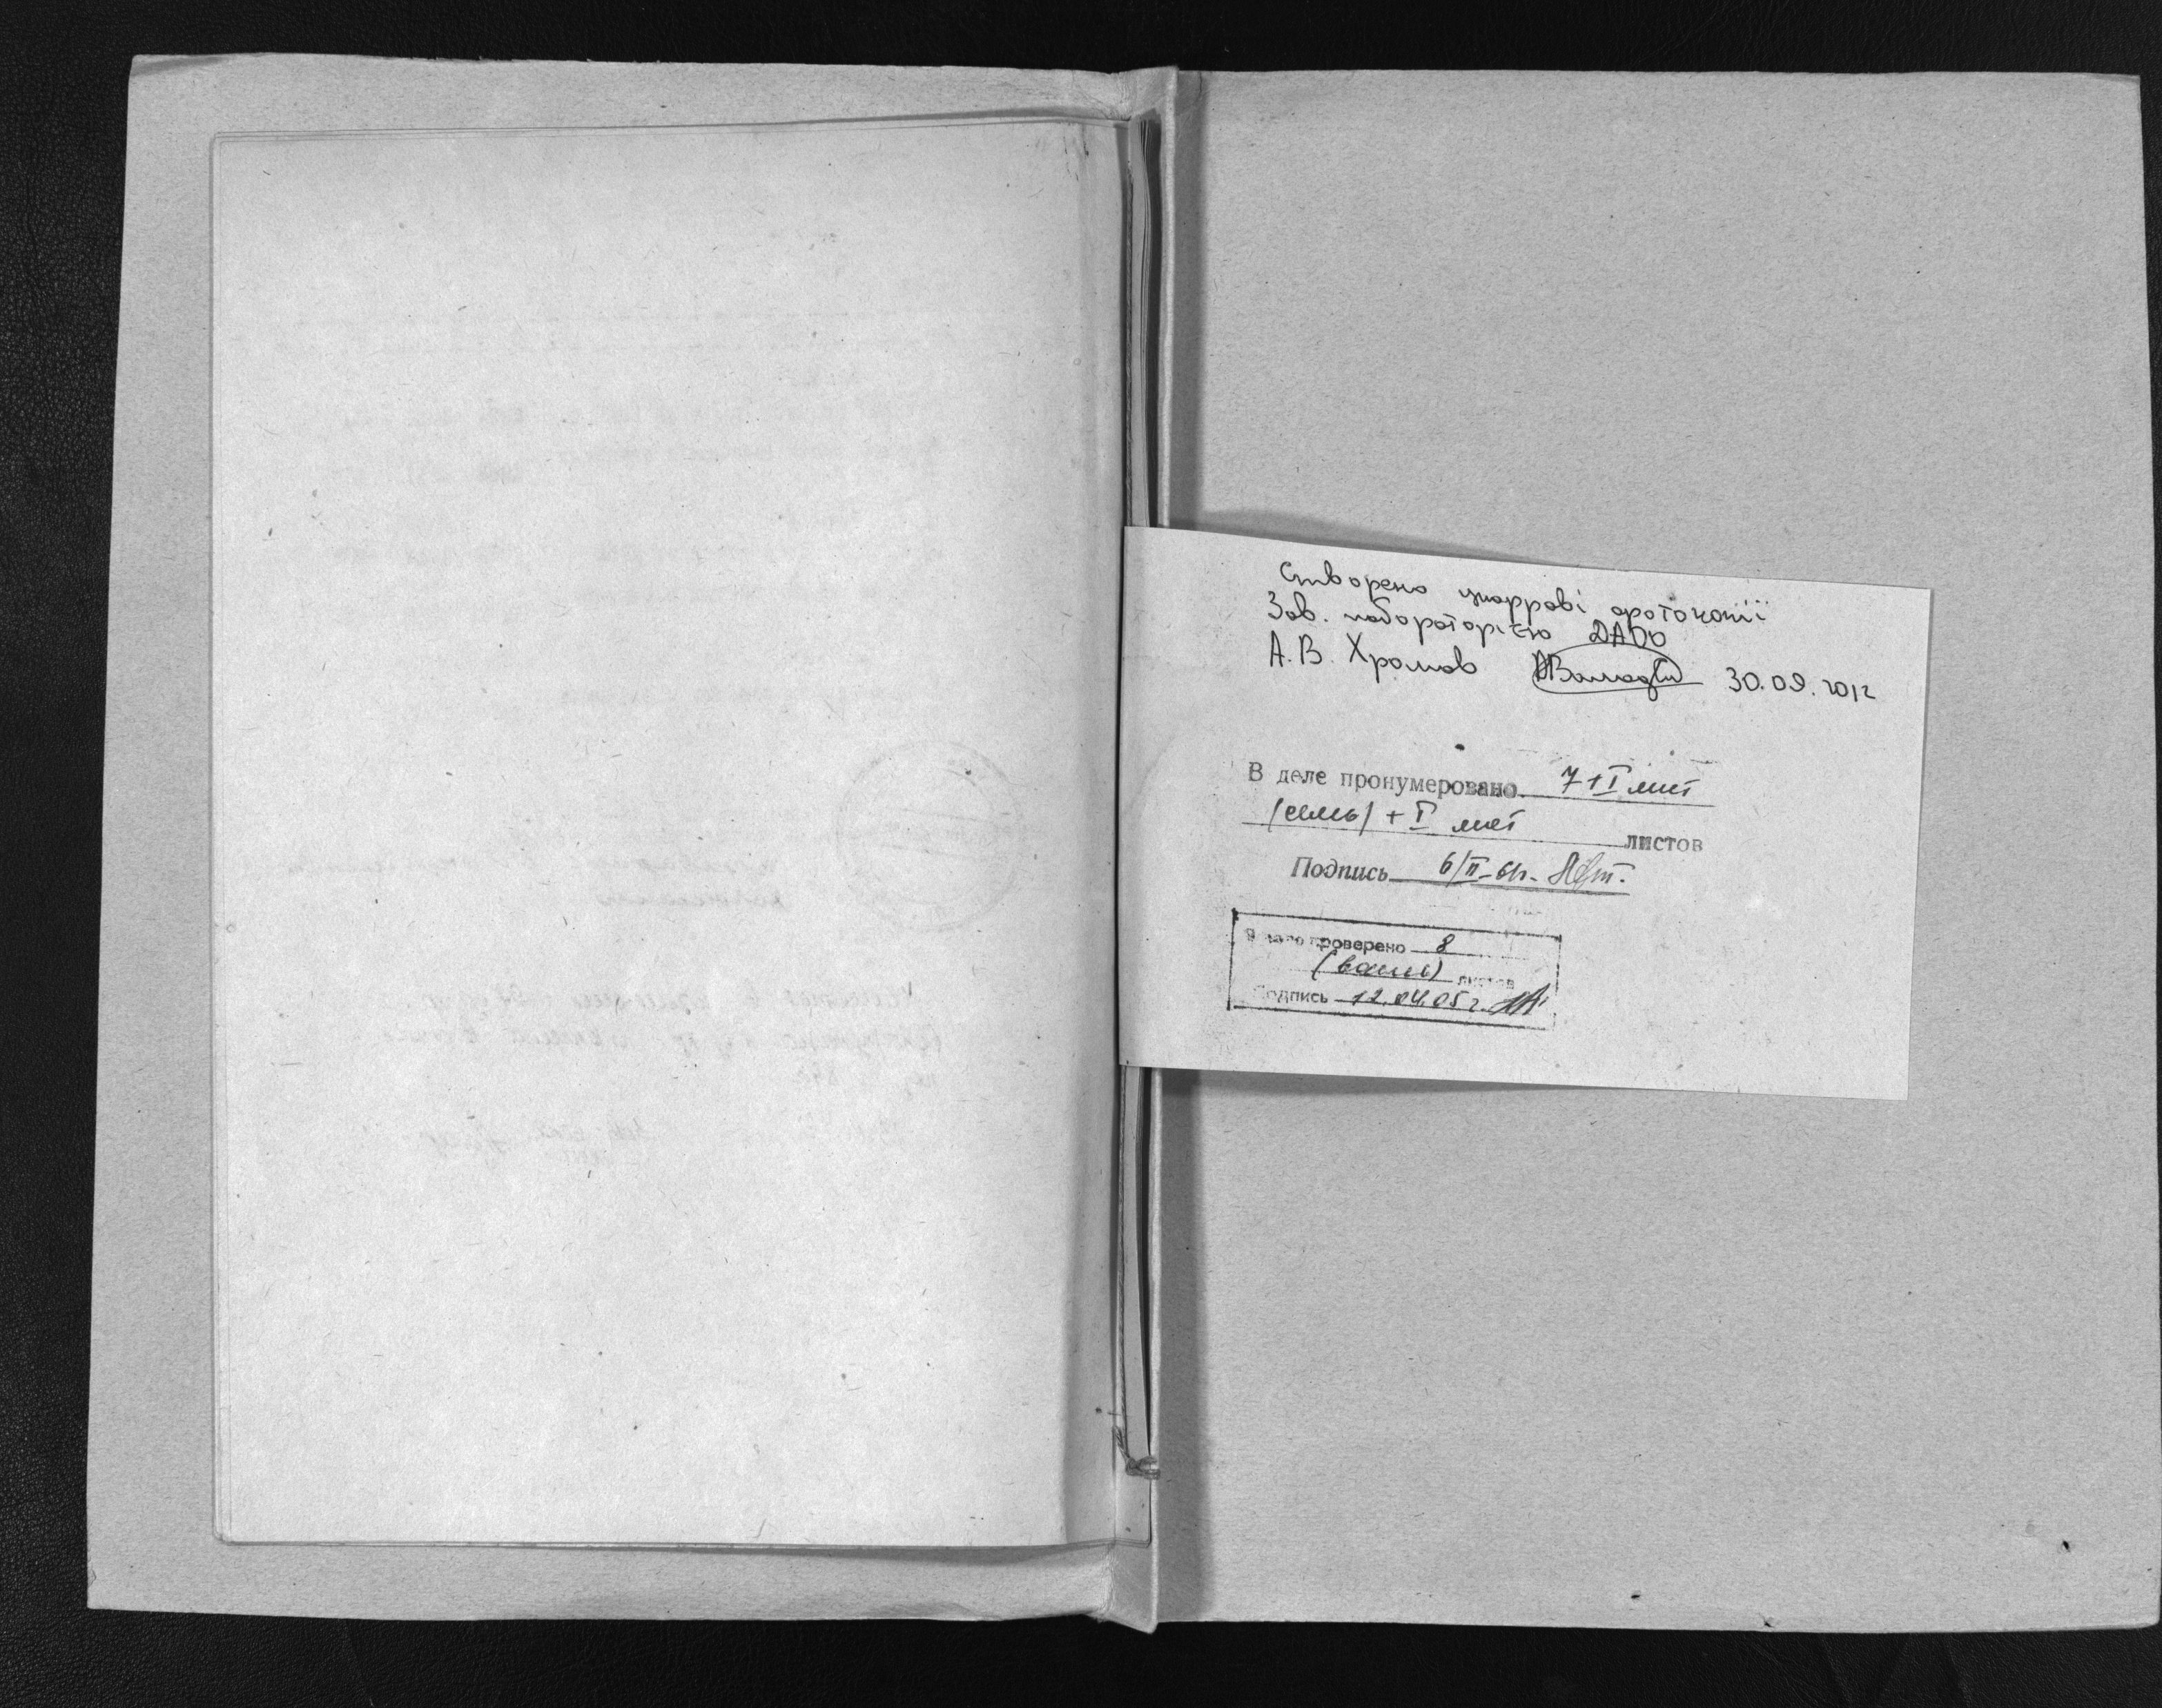 Створено цифрові фотокопії
Зав. лабораторією ДАОО
А. В. Хромов 30.09.2012
В деле пронумеровано 7+I лист
(семь) + I лист листов
Подпись 6/II-61г.
В деле проверено 8
(восемь) листов
Подпись 12.04.05 г.